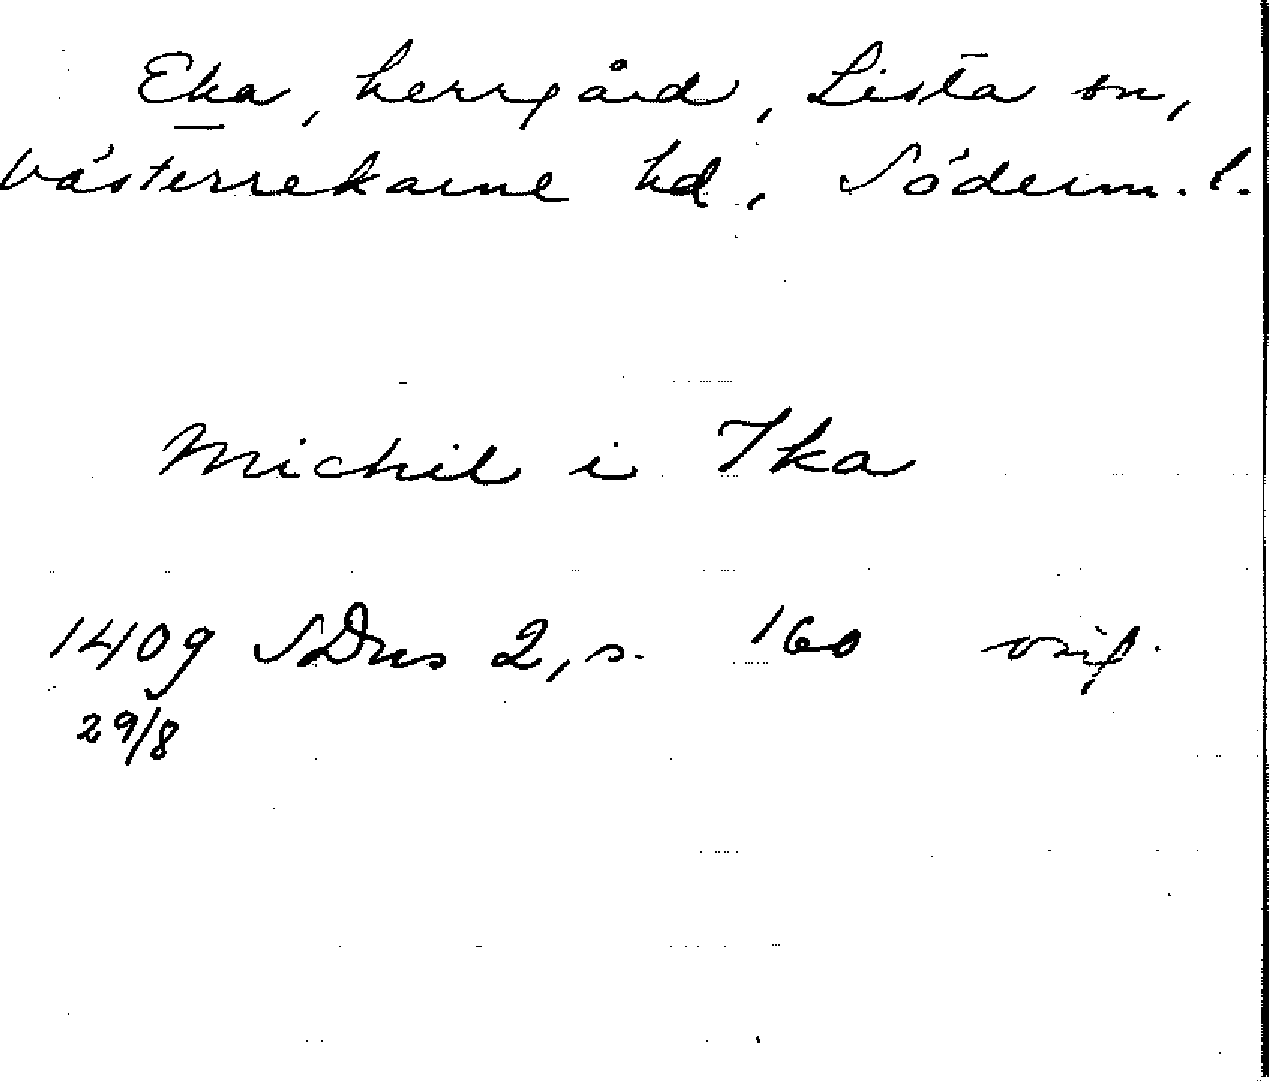 Eka, herrgård, Lista sn,
Västerrekarne hd, Söderm. l.
Michil i Ika
1409 SDns 2, s. 160 orig.
29/8